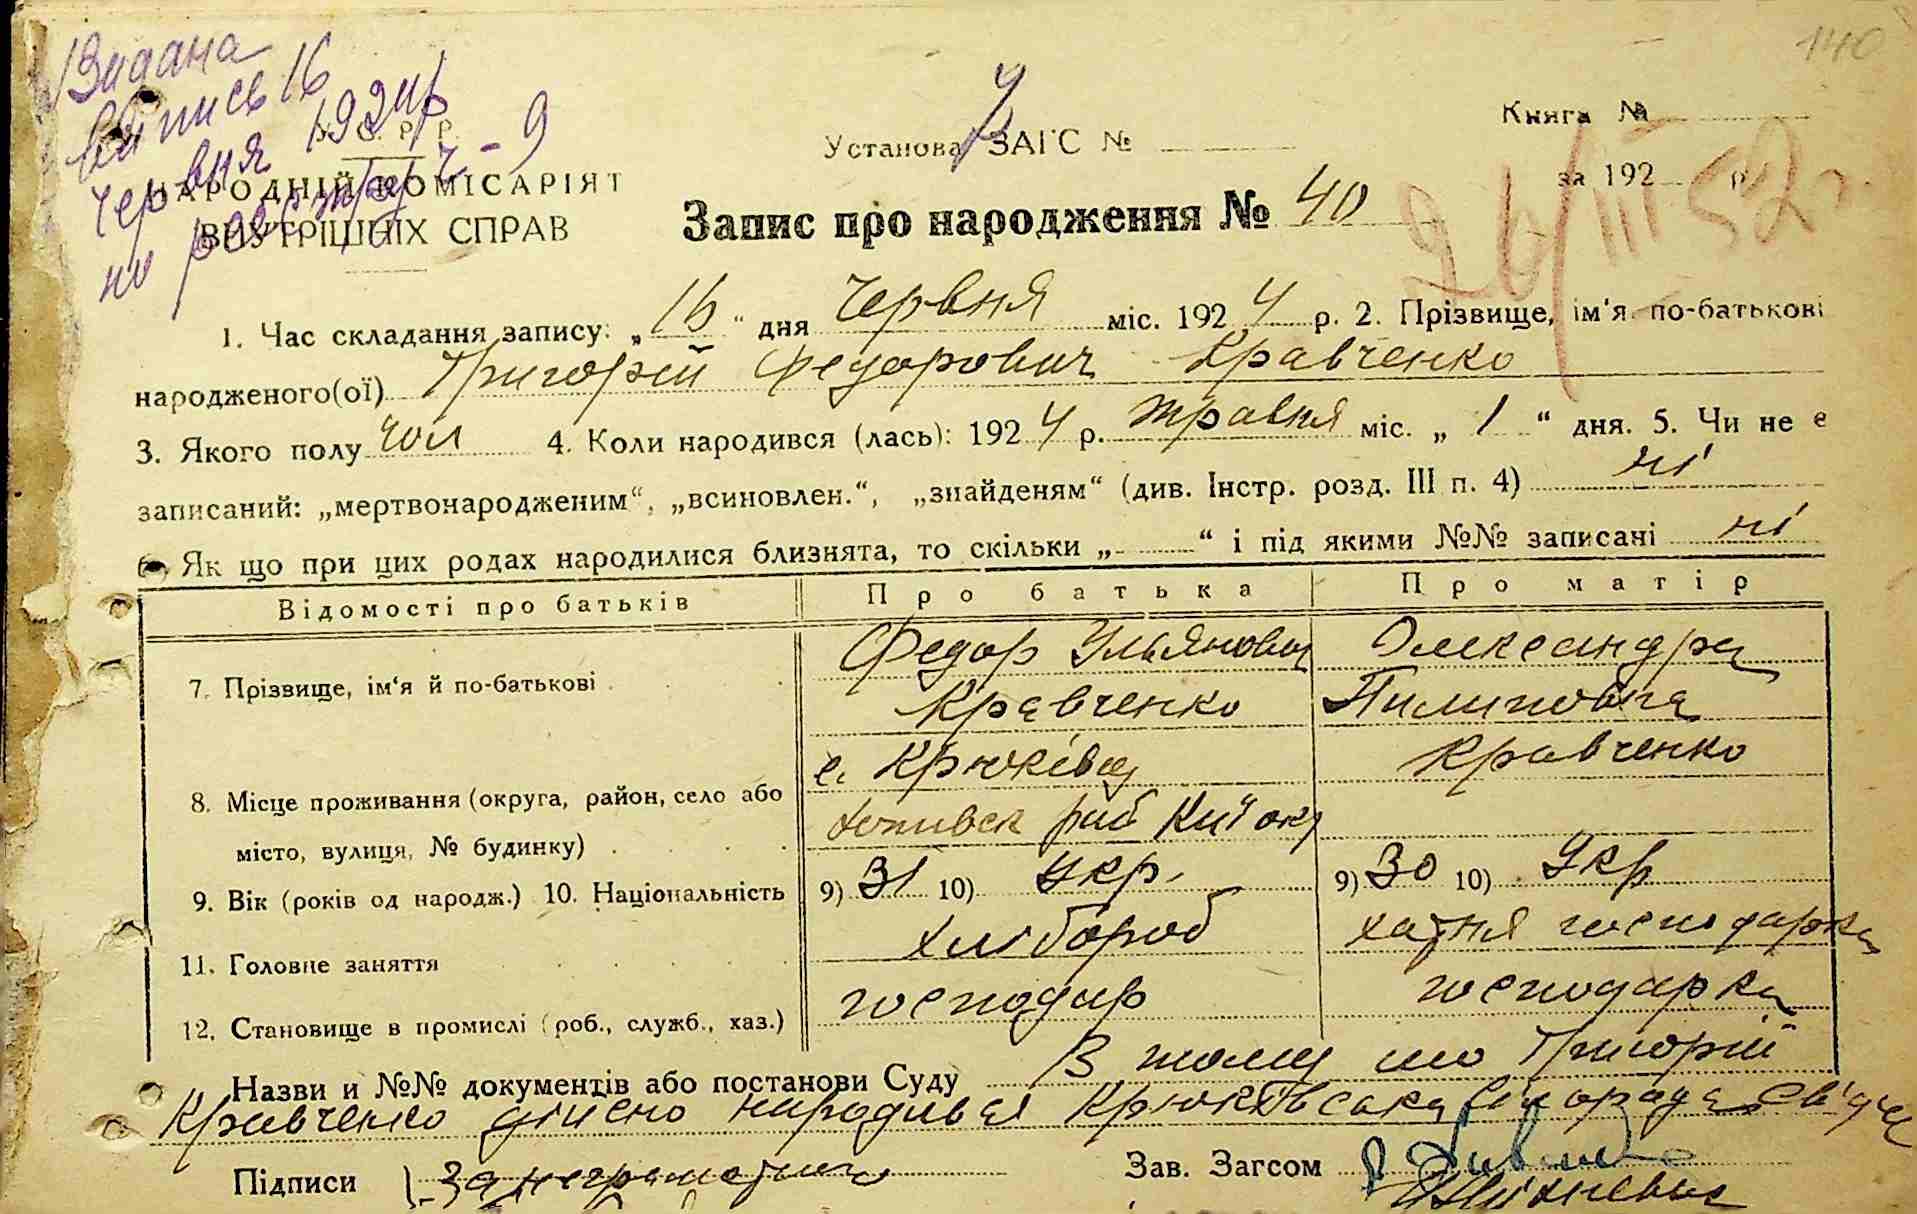 140
Видана
випись 16
червня 1924 р
по реєстру Ч-9
У. С. Р. Р.
НАРОДНІЙ КОМІСАРІЯТ
ВНУТРІШНІХ СПРАВ
Установа ЗАГС №
Книга №
за 192 р.
26/III 52 г.
Запис про народження № 40
1. Час складання запису: „16“ дня червня міс. 1924 р. 2. Прізвище, ім'я по-батькові
народженого(ої) Григорій Федорович Кравченко
3. Якого полу чол 4. Коли народився (лась): 1924 р. травня міс. „1“ дня. 5. Чи не є
записаний: „мертвонародженим“, „всиновлен.“, „знайденям“ (див. Інстр. розд. III п. 4) ні
6. Як що при цих родах народилися близнята, то скільки „-“ і під якими №№ записані ні
Відомості про батьків Про батька Про матір
7. Прізвище, ім'я й по-батькові Федор Ульянович Кравченко Олександра Пилиповна Кравченко
8. Місце проживання (округа, район, село або
місто, вулиця, № будинку) с. Крюківщ Київ окр
9. Вік (років од народж.) 10. Національність 9) 31 10) Укр. 9) 30 10) Укр
11. Головне заняття хлібороб хатня господарка
12. Становище в промислі (роб., служб., хаз.) господар господарка
Назви и №№ документів або постанови Суду В тому що Григорій
Кравченко дійсно народився Крюківська сілорада свідче
Підписи За неграмотного Зав. Загсом